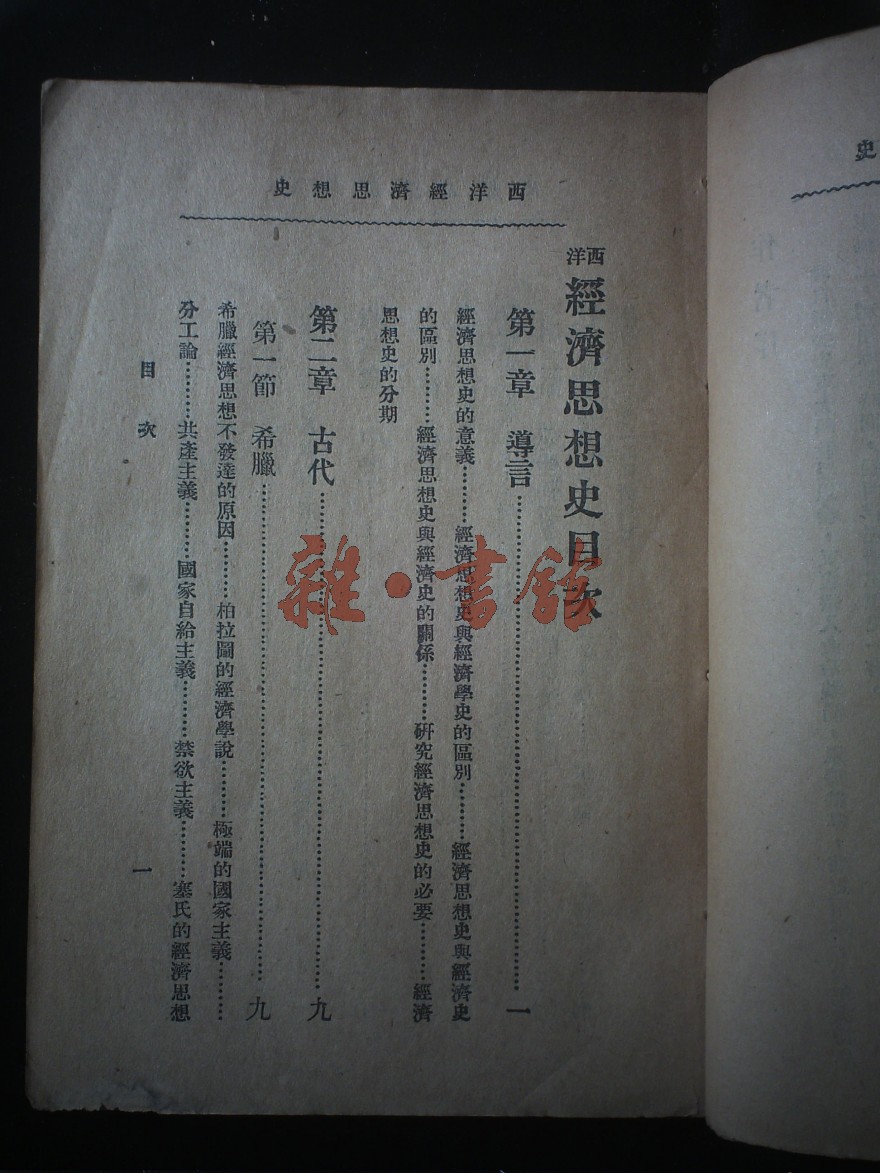 西洋經濟思想史
西洋
經濟思想史目次
第一章 導言…………一
經濟思想史的意義…………經濟思想史與經濟學史的區別…………經濟思想史與經濟史
的區別…………經濟思想史與經濟史的關係…………研究經濟思想史的必要…………經濟
思想史的分期
第二章 古代…………九
第一節 希臘…………九
希臘經濟思想不發達的原因…………柏拉圖的經濟學說…………極端的國家主義…………
分工論…………共產主義…………國家自給主義…………禁欲主義…………塞氏的經濟思想
目次
一
史
雜·書館